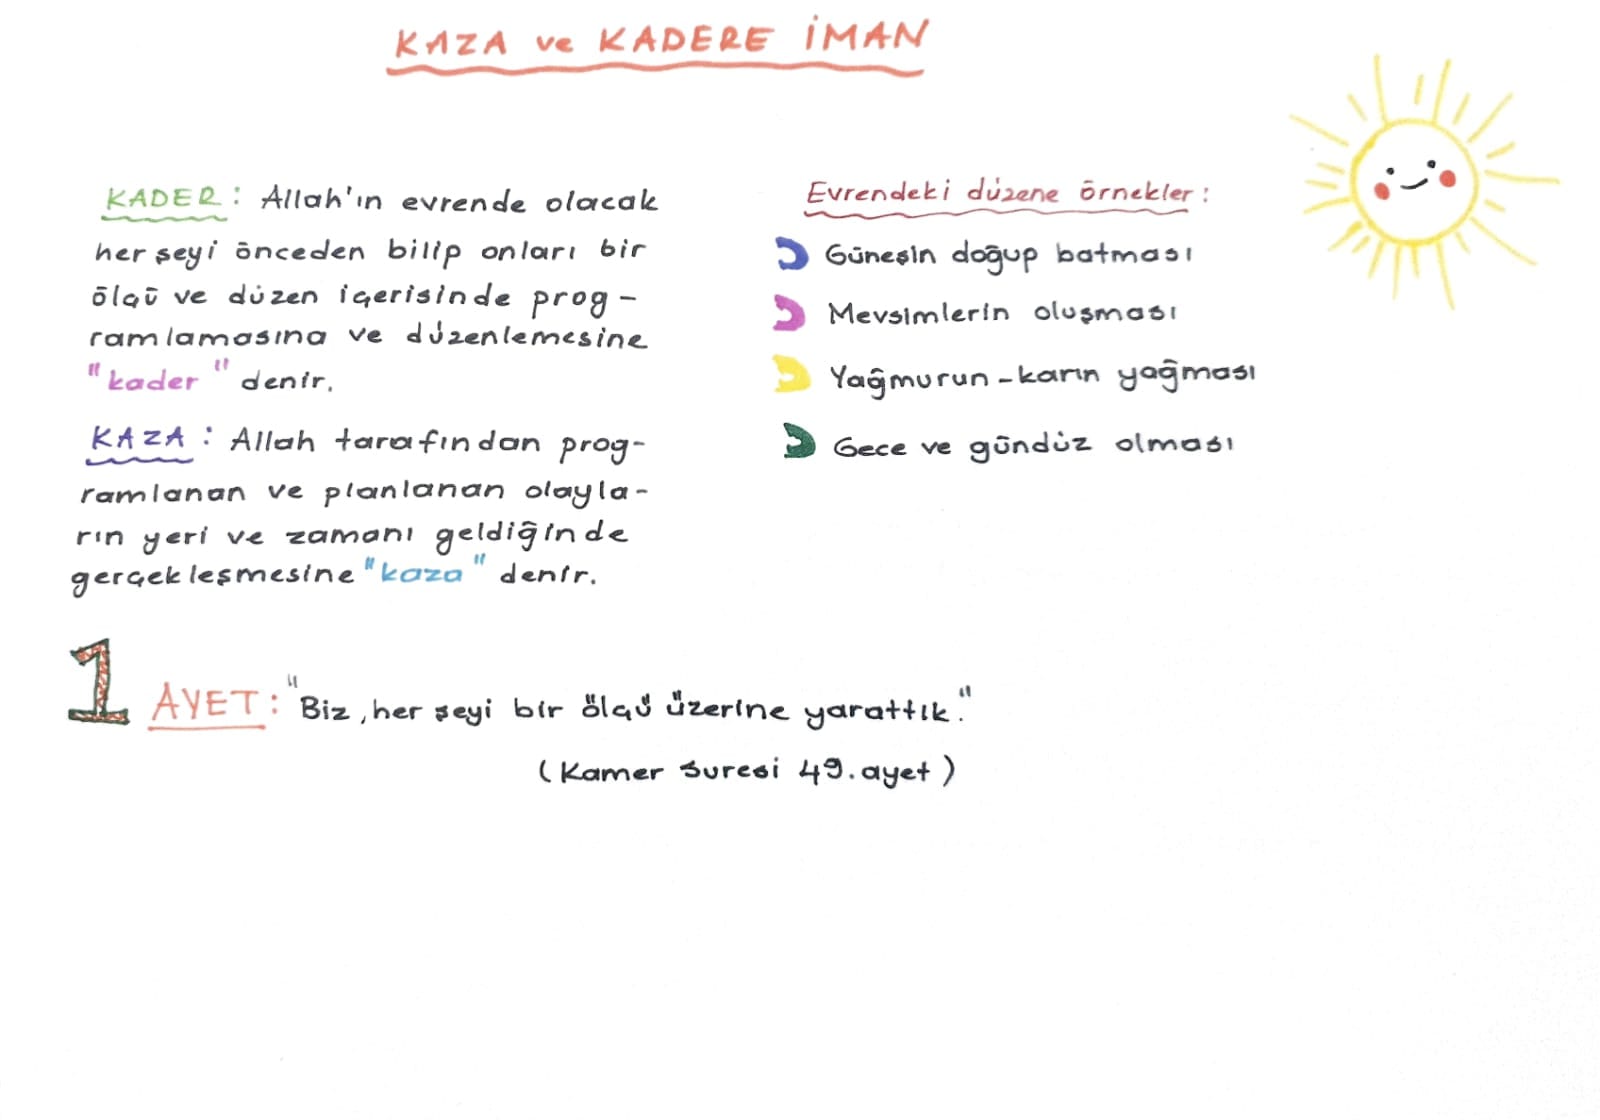 KAZA ve KADERE İMAN
KADER: Allah'ın evrende olacak
her şeyi önceden bilip onları bir
ölçü ve düzen içerisinde prog-
ramlamasına ve düzenlemesine
"kader" denir.
KAZA: Allah tarafından prog-
ramlanan ve planlanan olayla-
rın yeri ve zamanı geldiğinde
gerçekleşmesine "kaza" denir.
Evrendeki düzene örnekler:
Güneşin doğup batması
Mevsimlerin oluşması
Yağmurun-karın yağması
Gece ve gündüz olması
1 AYET: "Biz, her şeyi bir ölçü üzerine yarattık."
(Kamer suresi 49. ayet)